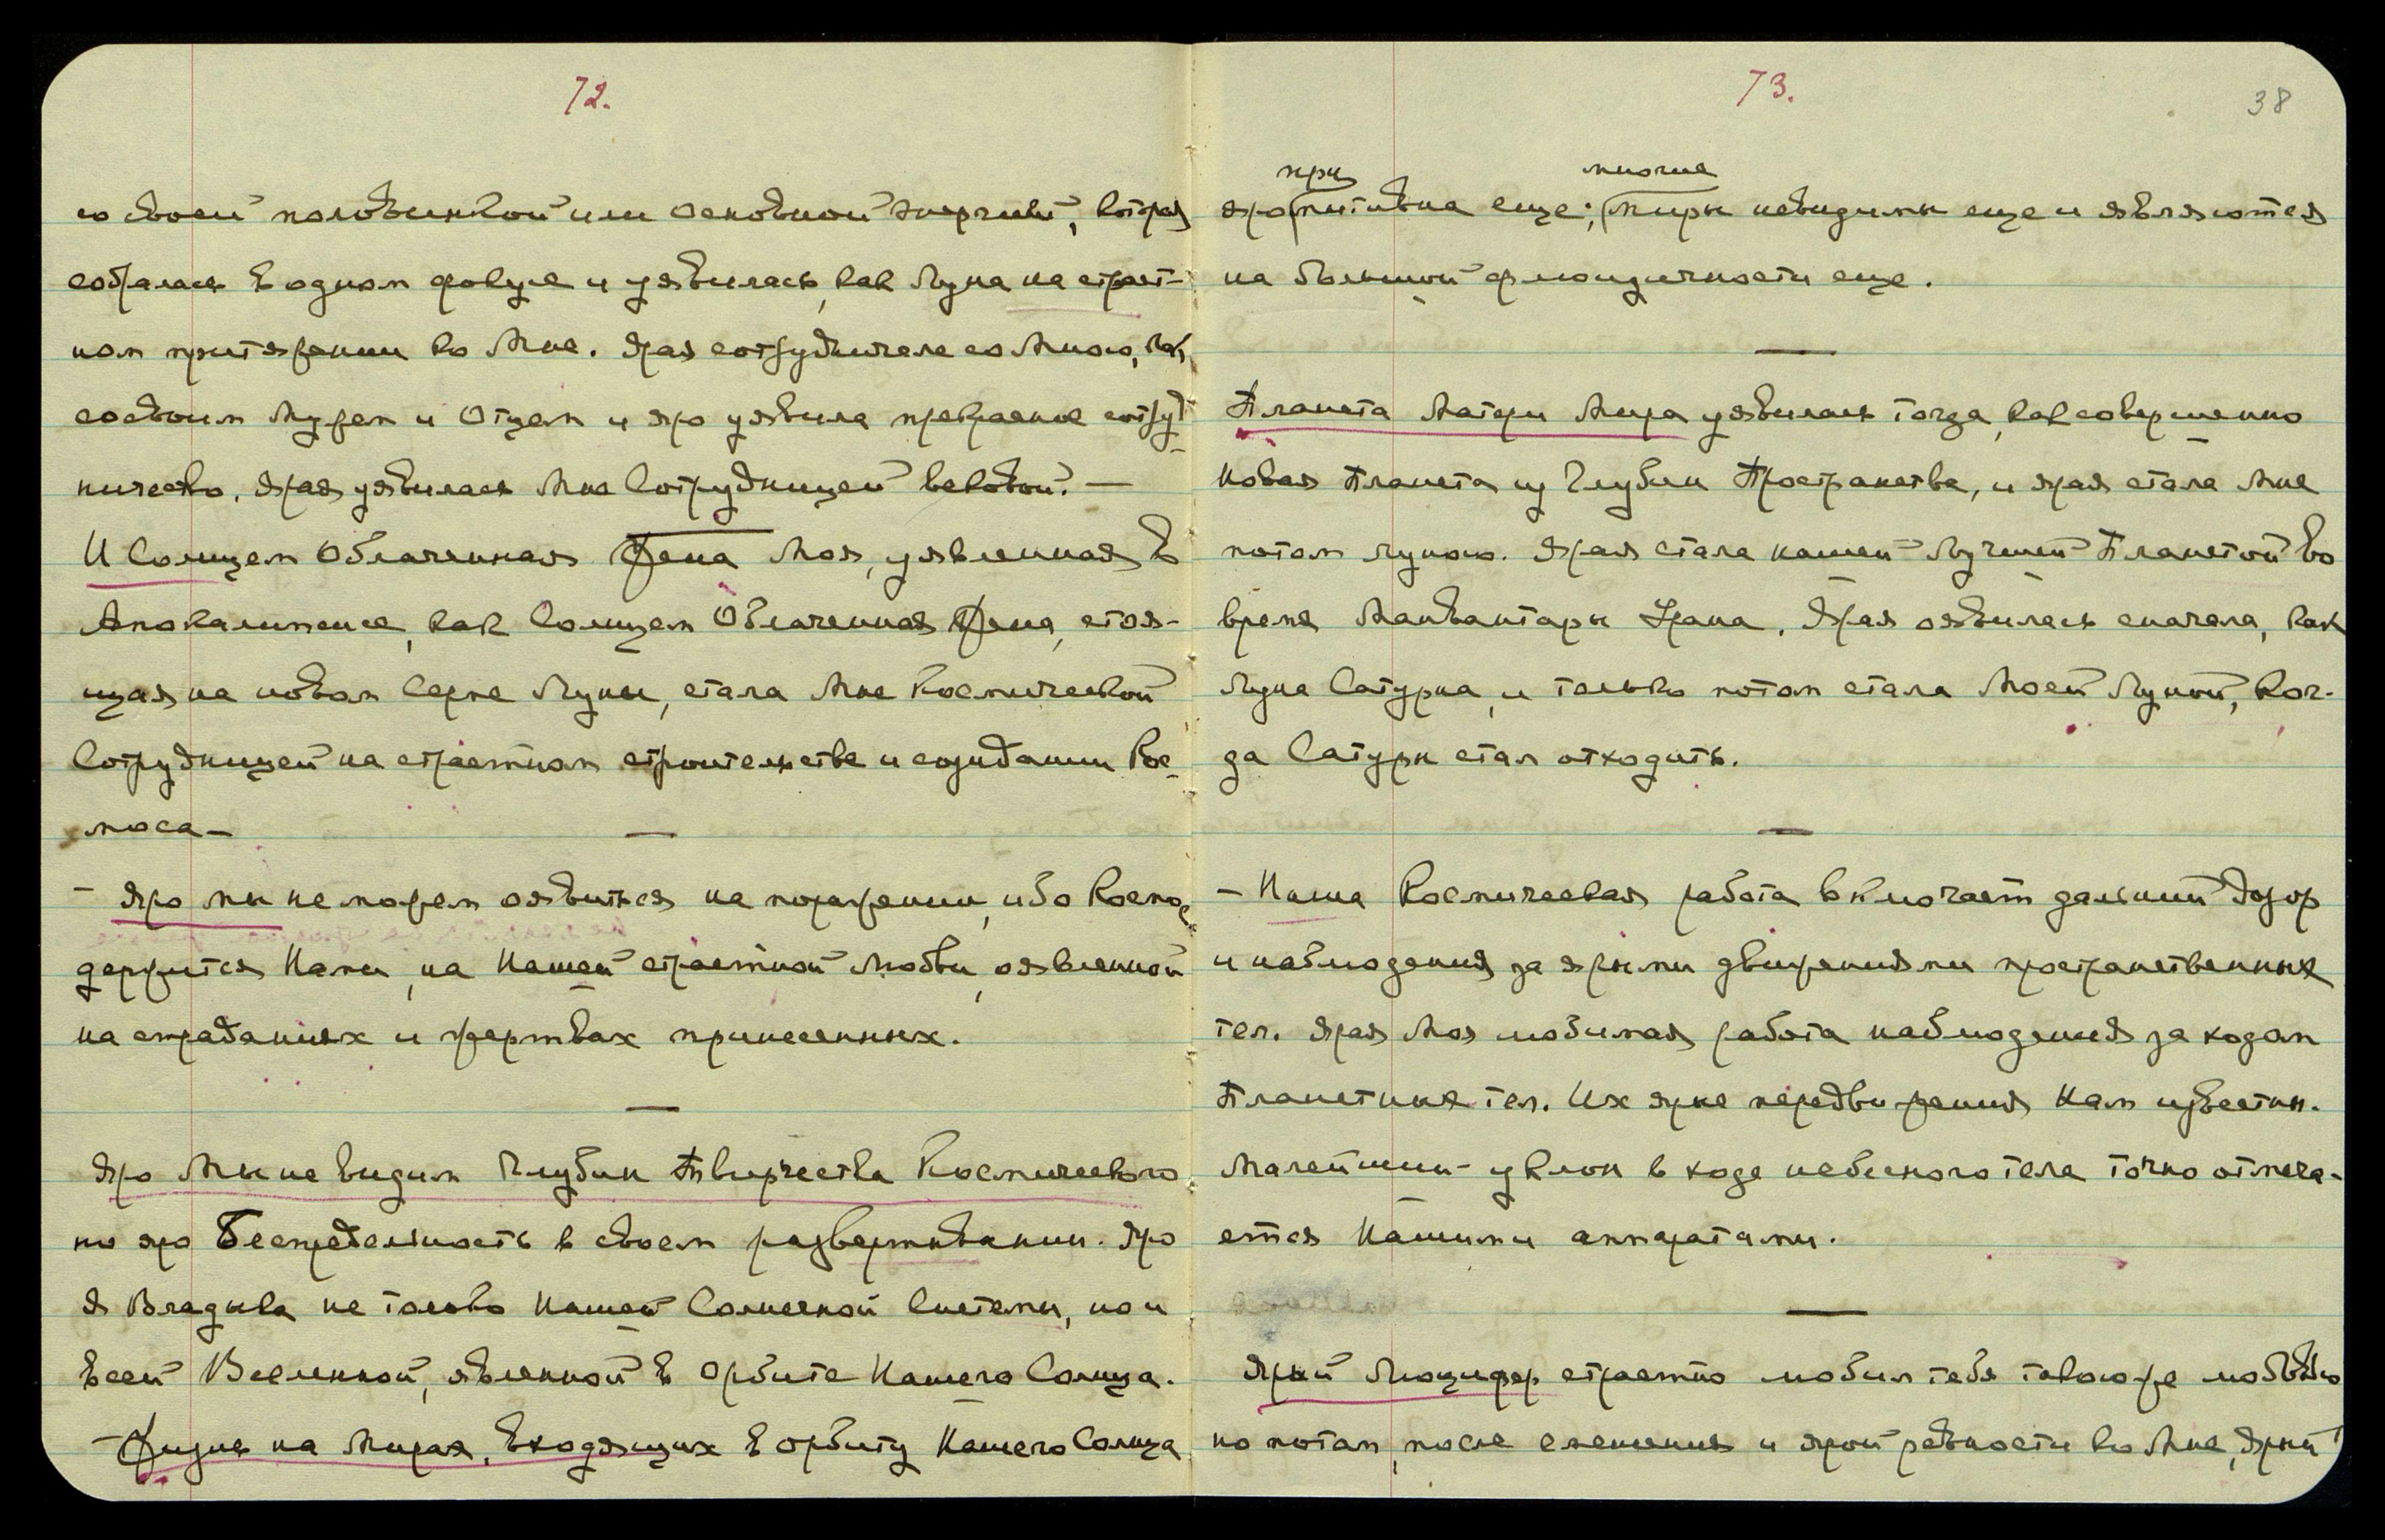 72.
со своей половинкой или основной энергией, которая
собралась в одном фокусе и уявилась, как Луна на страст-
ном притяжении ко Мне. Ярая сотрудничала со Мною, как
со своим Мужем и Отцом и яро уявила прекрасное сотруд-
ничество. Ярая уявилась Мне Сотрудницей вековой. —
И Солнцем Облаченная Жена Моя, уявленная в
Апокалипсисе, как Солнцем Облаченная Жена, стоя-
щая на новом Серпе Луны, стала Мне Космической
Сотрудницей на страстном строительстве и созидании Кос-
моса —
— Яро мы не можем оявиться на поражении, ибо Космос
держится Нами, на Нашей страстной Любви, оявленной
на страданиях и жертвах принесенных.
Яро Мы не видим Глубин Творчества Космического
но яро Беспредельность в своем развертывании. Яро
Я Владыка не только Нашей Солнечной Системы, но и
всей Вселенной, явленной в Орбите Нашего Солнца.
— Жизнь на Мирах, входящих в орбиту Нашего Солнца
73.
38
при многие
яро митивна еще; миры невидимы еще и являются
на большой флюидичности еще.
Планета Матери Мира уявилась тогда, как совершенно
Новая Планета из Глубин Пространства, и ярая стала Мне
потом луною. Ярая стала нашей Лучшей Планетой во
время Манвантары Урана. Ярая оявилась сначала, как
Луна Сатурна, и только потом стала Моей Луной, ког-
да Сатурн стал отходить.
— Наша Космическая работа включает дальний Дозор
и наблюдения за ярыми движениями пространственных
тел. Ярая Моя любимая работа наблюдения за ходом
Планетных тел. Их ярые передвижения Нам известны.
Малейший уклон в ходе небесного тела точно отмеча-
ется Нашими аппаратами.
Ярый Люцифер страстно любил тебя такою же любовью
но потом, после смещения и ярой ревности ко Мне, Ярый